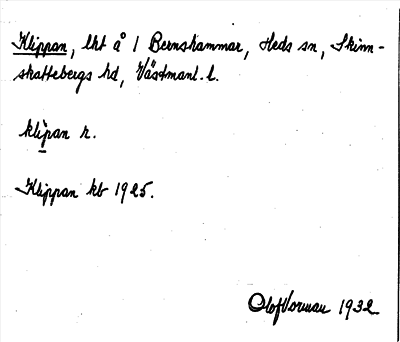 Klippan, lht å 1 Bernshammar, Heds sn, Skinn-
skattebergs hd, Västmanl. l.
klìpan r.
Klippan kb 1925.
Olof Vorman 1932